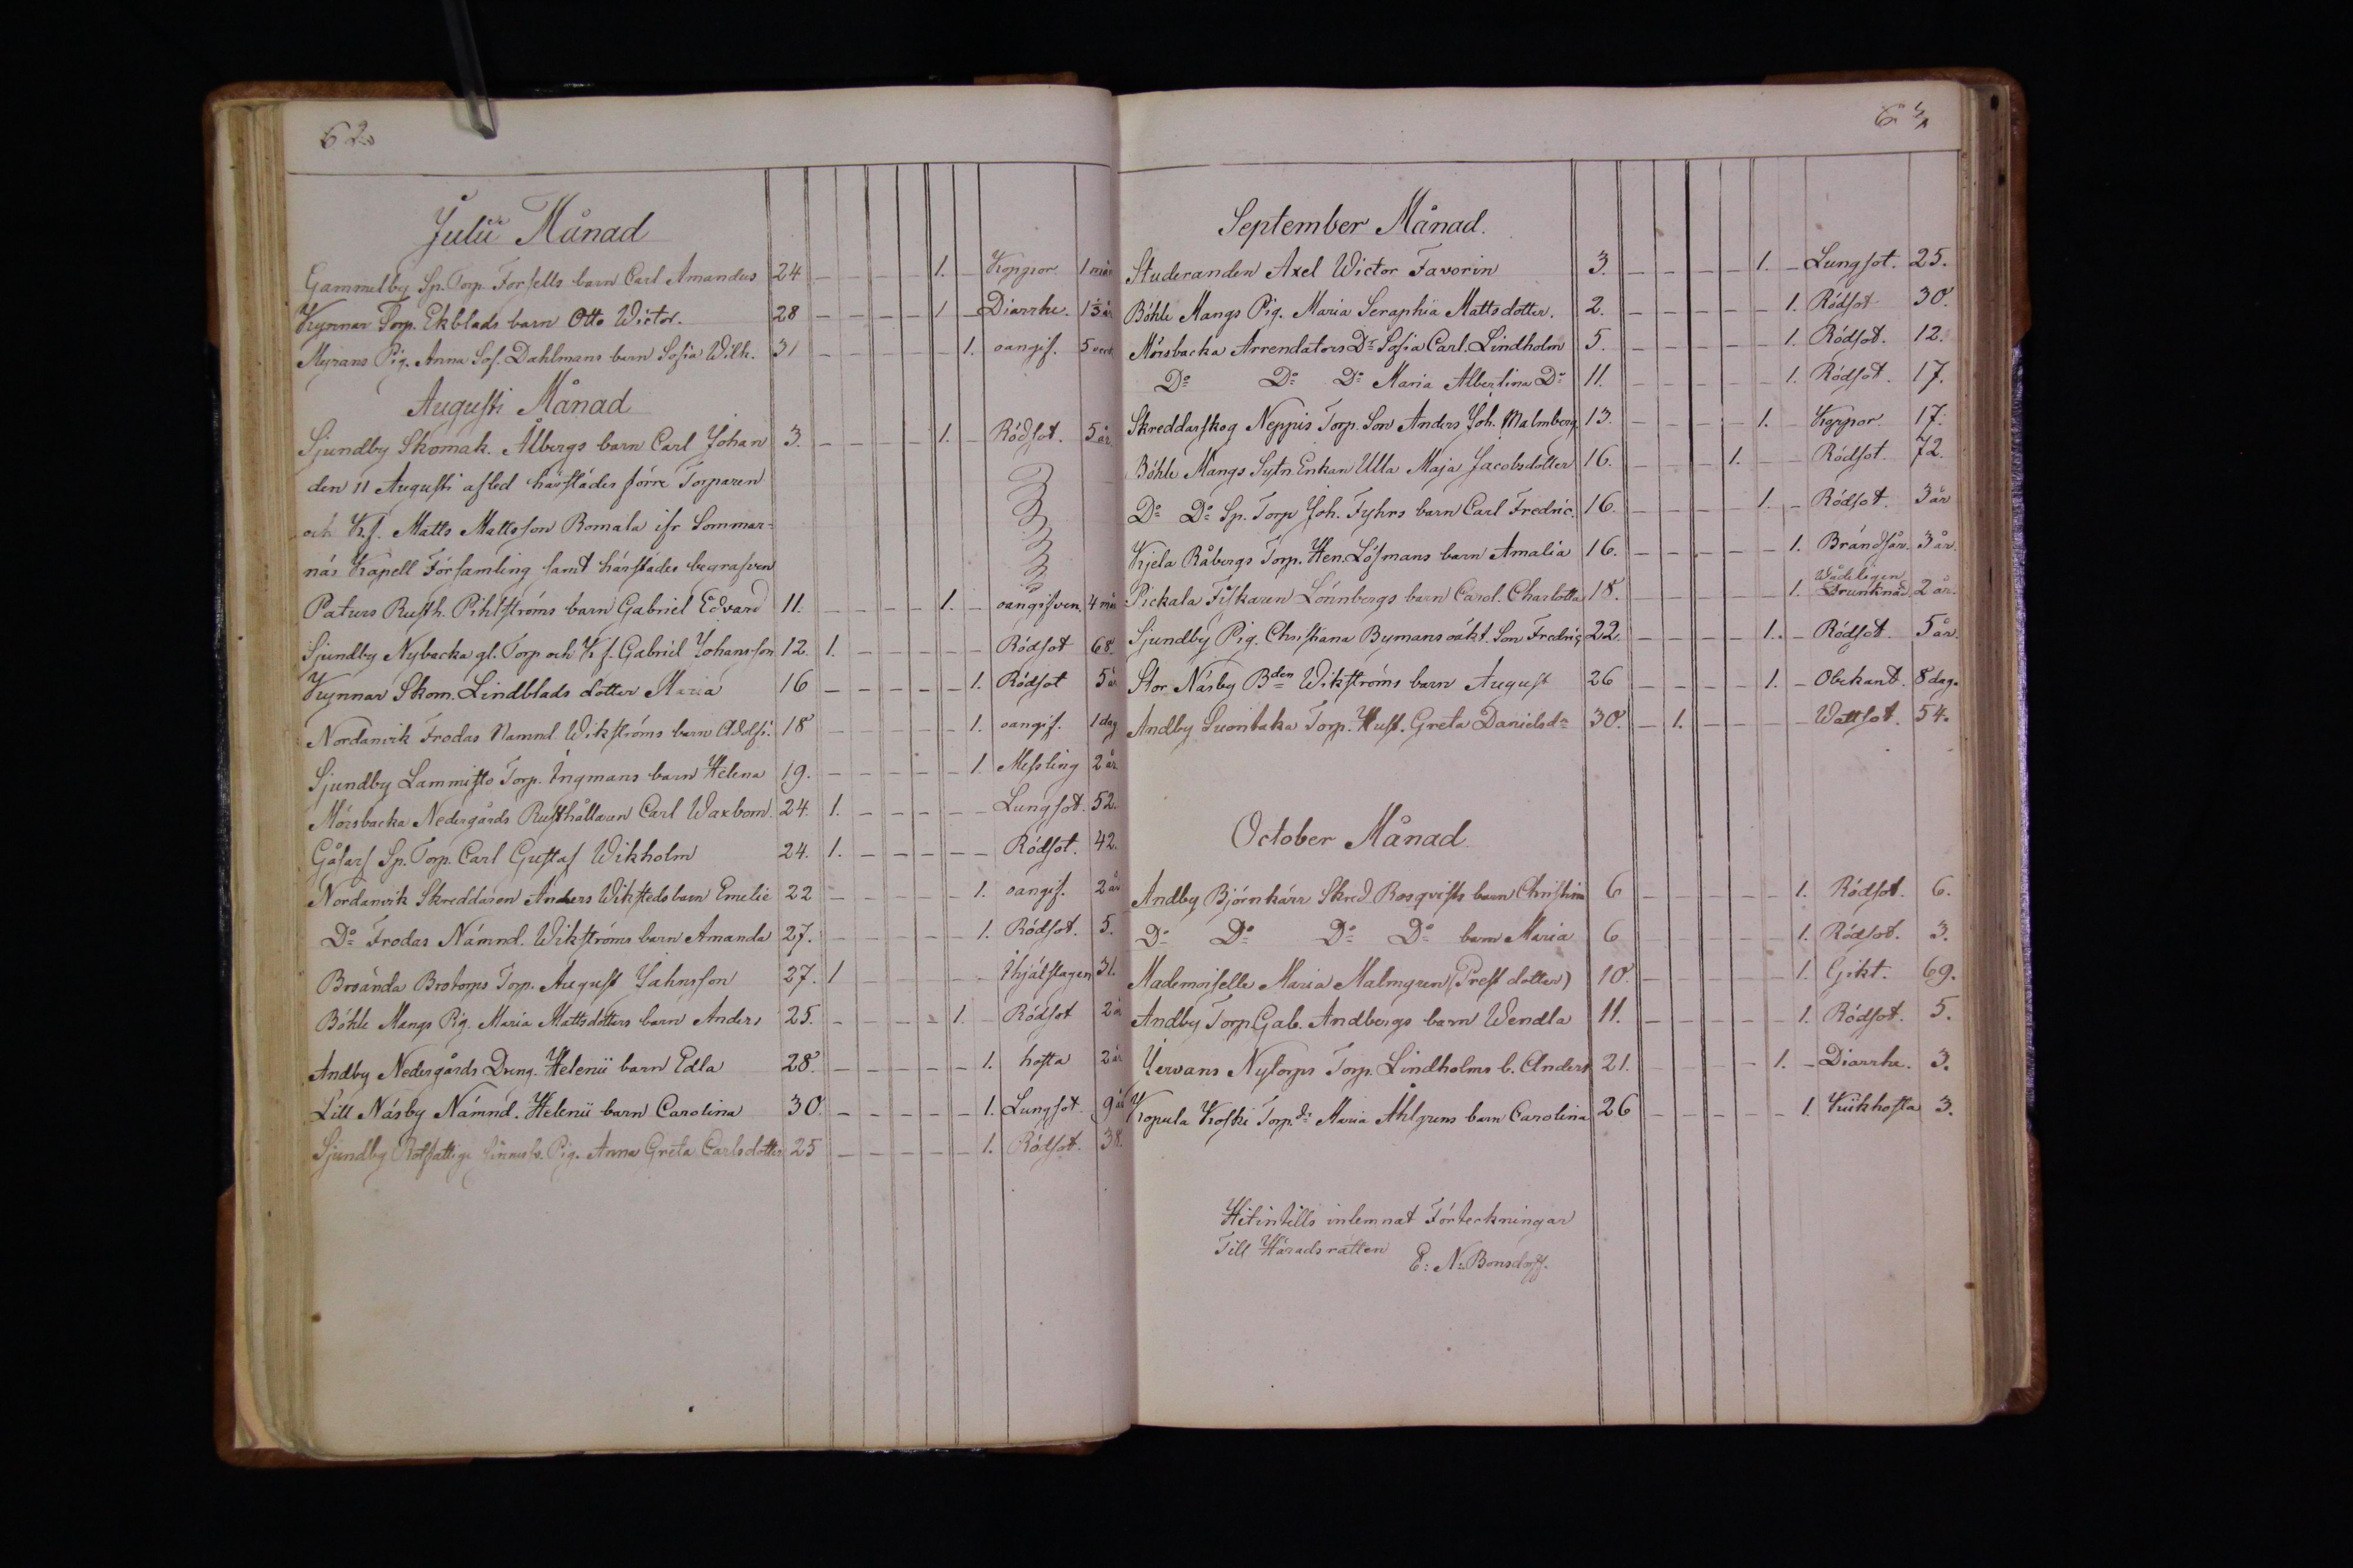 62.
Julii Månad
Gammelby Sp. Torp. Forsells barn Carl Amandus 24 – – – – 1. – Koppor 1 mån
Kynnar Torp. Ekblads barn Otto Wictor. 28 – – – – 1 – Diarrhe. 1 3/4 år
Myrans Pig. Anna Sof. Dahlmans barn Sofia Wilh. 31 – – – – – 1. oangif. 5 veck
Augusti Månad
Sjundby Skomak. Ålbergs barn Carl Johan 3. – – – – 1. – Rödsot. 5 år
den 11 Augusti afled härstädes förre Torparen
och K.f. Matts Mattsson Romala ifr Sommar-
näs Kapell Församling samt härstädes begrafven
Paturs Rusth. Pihlströms barn Gabriel Edvard 11. – – – – 1. – oangifven. 4 mån
Sjundby Nybacka gl. Torp och K.f. Gabriel Johansson 12. 1. – – – – – Rödsot 68.
Kynnar Skom. Lindblads dotter Maria 16 – – – – – 1. Rödsot 5 år
Nordanvik Frodas Nämnd. Wikströms barn Adolf. 18 – – – – – 1. oangif. 1 dag
Sjundby Lammisto Torp. Ingmans barn Helena 19. – – – – – 1. Messling 2 år
Mörsbacka Nedergårds Rusthållaren Carl Waxbom. 24. 1. – – – – – Lungsot. 52.
Gåsars Sp. Torp. Carl Gustaf Wikholm 24. 1. – – – – – Rödsot. 42.
Nordanvik Skreddaren Anders Wikstedsbarn Emelie 22 – – – – – 1. oangif. 2 år
Do Frodas Nämnd. Wikströms barn Amanda 27. – – – – – 1. Rödsot. 5.
Broända Brotorps Torp. August Jahnsson 27. 1 – – – – – Ihjälslagen 31.
Böhle Mangs Pig. Maria Mattsdotters barn Anders 25. – – – – 1. – Rödsot 2 år
Andby Nedergårds Dreng. Helenii barn Edla 28. – – – – – 1. hosta 2 år
Lill Näsby Nämnd. Helenii barn Carolina 30. – – – – – 1. Lungsot. 9 år
Sjundby Rotfattige Pig. Anna Greta Carlsdotter 25 – – – – – 1. Rödsot. 38.
63
September Månad.
Studeranden Axel Wictor Favorin 3. – – – – 1. – Lungsot. 25.
Böhle Mangs Pig. Maria Seraphia Mattsdotter. 2. – – – – – 1. Rödsot. 30.
Mörsbacka Arrendators Dr Sofia Carl. Lindholm 5. – – – – – 1. Rödsot. 12.
Do Do Do Maria Albertina Do 11. – – – – – 1. Rödsot. 17.
Skreddarskog Neppis Torp. Son Anders Joh. Malmberg 13. – – – – 1. – Koppor. 17.
Böhle Mangs Sytn. Enkan Ulla Maja Jacobsdotter 16. – – – 1. – – Rödsot. 72.
Do Do Sp. Torp Joh. Fyhrs barn Carl Fredric. 16. – – – – 1. – Rödsot. 3 år
Kjela Råbergs Torp. Hen. Löfmans barn Amalia 16. – – – – – 1. Brändsår. 3 år.
Pickala Fiskaren Lönnbergs barn Carol. Charlotta 18. – – – – – 1. Wådeligen Drunknad. 2 år.
Sjundby Pig. Christiana Bymans oäkt. Son Fredric 22. – – – – 1. – Rödsot. 5 år.
Stor Näsby Bden Wikströms barn August 26 – – – – 1. – Obekant. 8 dag.
Andby Suontaka Torp. Hust. Greta Danielsdr 30. – 1. – – – – Wattsot. 54.
October Månad
Andby Björnkärr Skred. Rosqvists barn Christina 6 – – – – – 1. Rödsot. 6.
Do Do Do Do barn Maria 6 – – – – – 1. Rödsot. 3.
Mademoiselle Maria Malmgren (Prest dotter) 10. – – – – – 1. Gikt. 69.
Andby Torp. Gab. Andbergs barn Wendla 11. – – – – – 1. Rödsot. 5.
Yervans Nytorps Torp. Lindholms b. Anders 21. – – – – 1. – Diarrhe. 3.
Kopula Koski Torp. dr Maria Ahlgrens barn Carolina 26 – – – – – 1. Kikhosta 3.
Hitintills inlemnat Förteckningar
Till Häradsrätten
E: N: Bonsdorff.